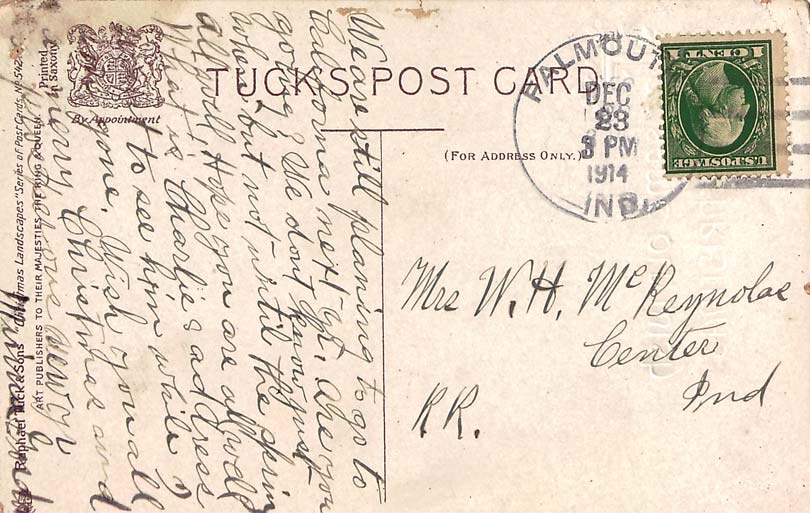 TUCK'S POST CARD
By Appointment
(FOR ADDRESS ONLY.)
FALMOUTH
DEC
23
3 PM
1914
IND.
1 CENT 1
U.S. POSTAGE
Mrs W. H. McReynolds
Center
Ind
RR.
We are still planing to go to
California next yr. Are you
going? We dont know just
when but not until the spring
all well, Hope you are all well
What is Charlie's address
to see him while
gone. Wish you all
a merry Christmas and
Raphael Tuck & Sons' "Christmas Landscapes" Series of Post Cards, No. 542
ART PUBLISHERS TO THEIR MAJESTIES THE KING & QUEEN.
Printed
in Saxony